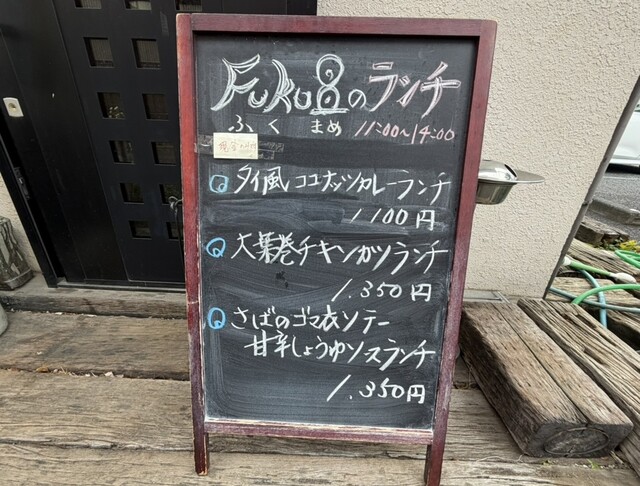 Fuku豆のランチ
ふくまめ 11:00~14:00
現金のみ
タイ風ココナッツカレーランチ
1100円
大葉巻チキンカツランチ
1.350円
さばのゴマ衣ソテー
甘辛しょうゆソースランチ
1.350円